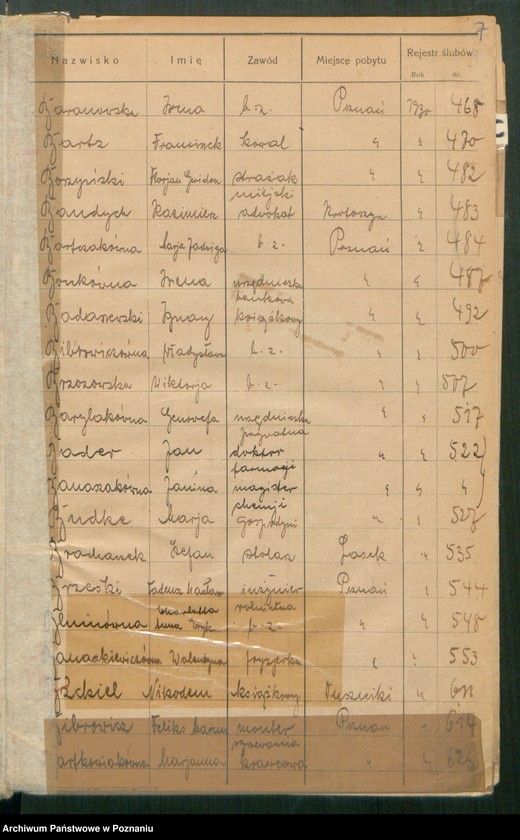 7
Nazwisko Imię Zawód Miejsce pobytu Rejestr ślubów
Rok nr.
Baranowska Irena b.z. Poznań 1930 468
Bartz Franciszek kowal " " 470
Florjan strażak " " 482
miejski
Bandych Kazimierz adwokat Krotoszyn " 483
Bartczakówna Marja Jadwiga b.z. Poznań " 484
Bonkówna Irena urzędniczka " " 487
bankowa
Badanowski Ignacy księgowy " " 492
Bibrowiczówna Władysława b.z. " " 500
Brzozowska Wiktorja b.z. " " 507
Barylakówna Genowefa urzędniczka " " 517
prywatna
Bader Jan doktor " " 522
farmacji
Banaszakówna Janina magister " " "
chemji
Budke Marja gospodyni " " 527
Brachanek Stefan stolarz Lasek " 535
Brzeski Tadeusz Wacław inżynier Poznań " 544
rolnictwa
Charlotta
Anna b.z. " " 548
Walentyna fryzjerka " " 553
Nikodem księgowy Duszniki " 611
Feliks Marcin monter Poznań " 614
Bartkowiakówna Marjanna krawcowa " " 625
Archiwum Państwowe w Poznaniu